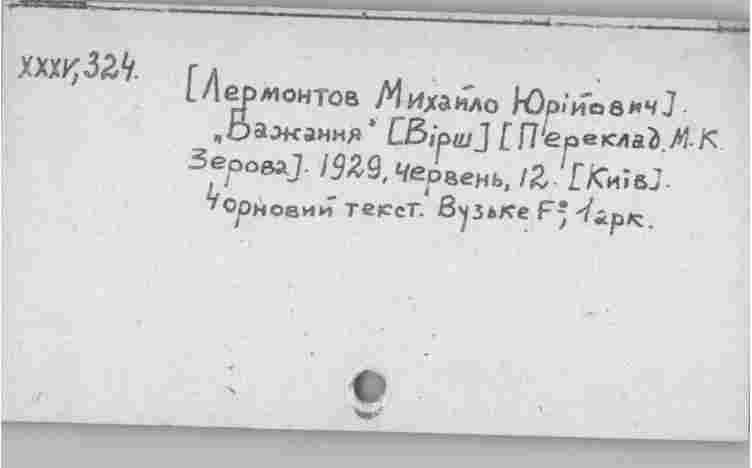 XXXV, 324.
[Лермонтов Михайло Юрійович].
„Бажання" [Вірш] [Переклад М.К.
Зерова]. 1929, червень, 12. [Київ].
Чорновий текст. Вузьке F°; 1 арк.